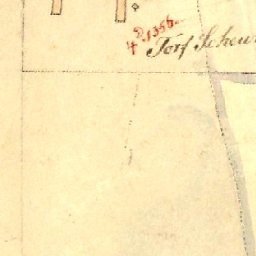 1356.
Torf Scheu